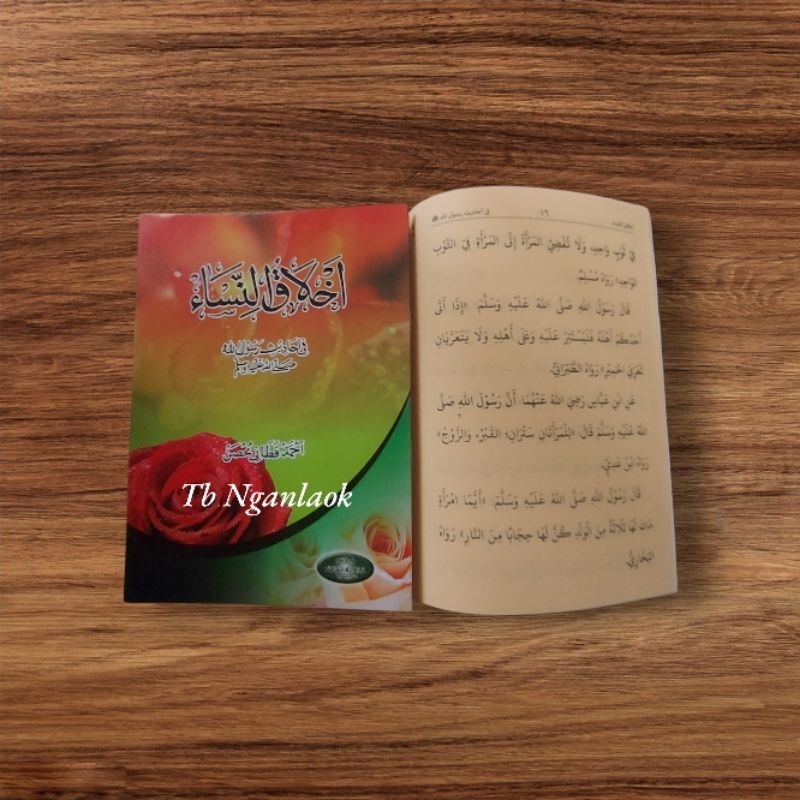 أخلاق النساء
في أحاديث رسول الله
صلى الله عليه وسلم
أحمد قطاني محصن
Tb Nganlaok
في أحاديث رسول الله ﷺ ١٦ أخلاق النساء
فِي ثَوْبٍ وَاحِدٍ، وَلَا تُفْضِي المَرْأَةُ إِلَى المَرْأَةِ فِي الثَّوْبِ
الوَاحِدِ» رَوَاهُ مُسْلِمٌ.
قَالَ رَسُوْلُ اللهِ صَلَّى اللهُ عَلَيْهِ وَسَلَّمَ: «إِذَا أَتَى
أَحَدُكُمْ أَهْلَهُ فَلْيَسْتَتِرْ عَلَيْهِ وَعَلَى أَهْلِهِ وَلَا يَتَعَرَّيَانِ
تَعَرِّيَ الحَمِيْرِ» رَوَاهُ الطَّبَرَانِيُّ.
عَنِ ابْنِ عَبَّاسٍ رَضِيَ اللهُ عَنْهُمَا: أَنَّ رَسُوْلَ اللهِ صَلَّى
اللهُ عَلَيْهِ وَسَلَّمَ قَالَ: «لِلْمَرْأَتَانِ سَتْرَانِ؛ القَبْرُ، وَالزَّوْجُ»
رَوَاهُ ابْنُ عَدِيٍّ.
قَالَ رَسُوْلُ اللهِ صَلَّى اللهُ عَلَيْهِ وَسَلَّمَ: «أَيُّمَا امْرَأَةٍ
مَاتَ لَهَا ثَلَاثَةٌ مِنَ الْوَلَدِ، كُنَّ لَهَا حِجَابًا مِنَ النَّارِ» رَوَاهُ
البُخَارِيُّ.